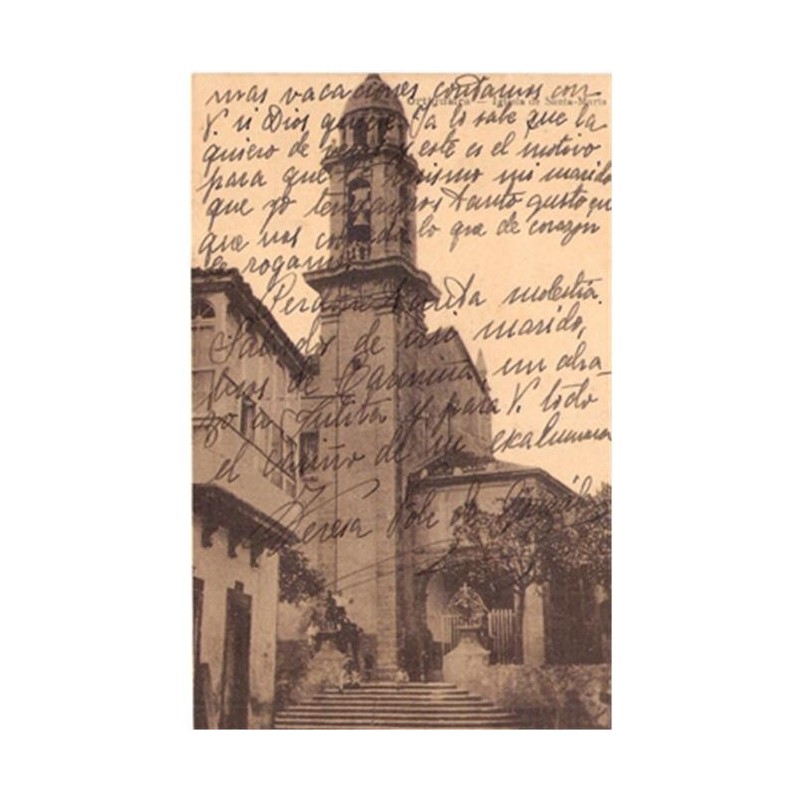 Iglesia de Santa-María
mas vacaciones contamos con
V. si Dios quiere. Ya lo sabe que la
quiero de y este es el motivo
para que mismo mi marido
que yo tengamos tanto gusto en
que nos lo que de corazon
le rogamos
Perdone tanta molestia.
Saludos de mi marido,
besos de Carmiña, un abra-
zo a Julita y para V. todo
el cariño de su exalumna
Teresa de